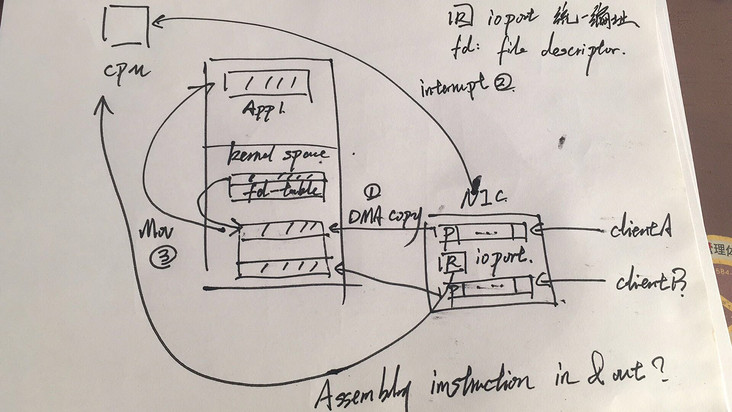 R ioport 统一编址
fd: file descriptor.
cpu
interrupt ②
App1
kernel space
fd-table
NIC
①
DMA copy
P
clientA
Mov
③
R ioport.
P
clientB
Assembly instruction in & out?
管理体